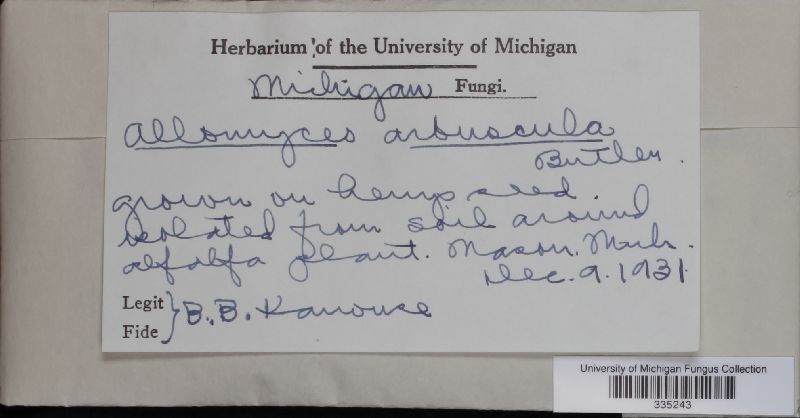 Herbarium of the University of Michigan
Michigan Fungi.
Allomyces arbuscula
Butler.
grown on hemp seed.
isolated from soil around
alfalfa plant. Mason. Mich.
Dec. 9. 1931
Legit
Fide
B. B. Kanouse
University of Michigan Fungus Collection
335243